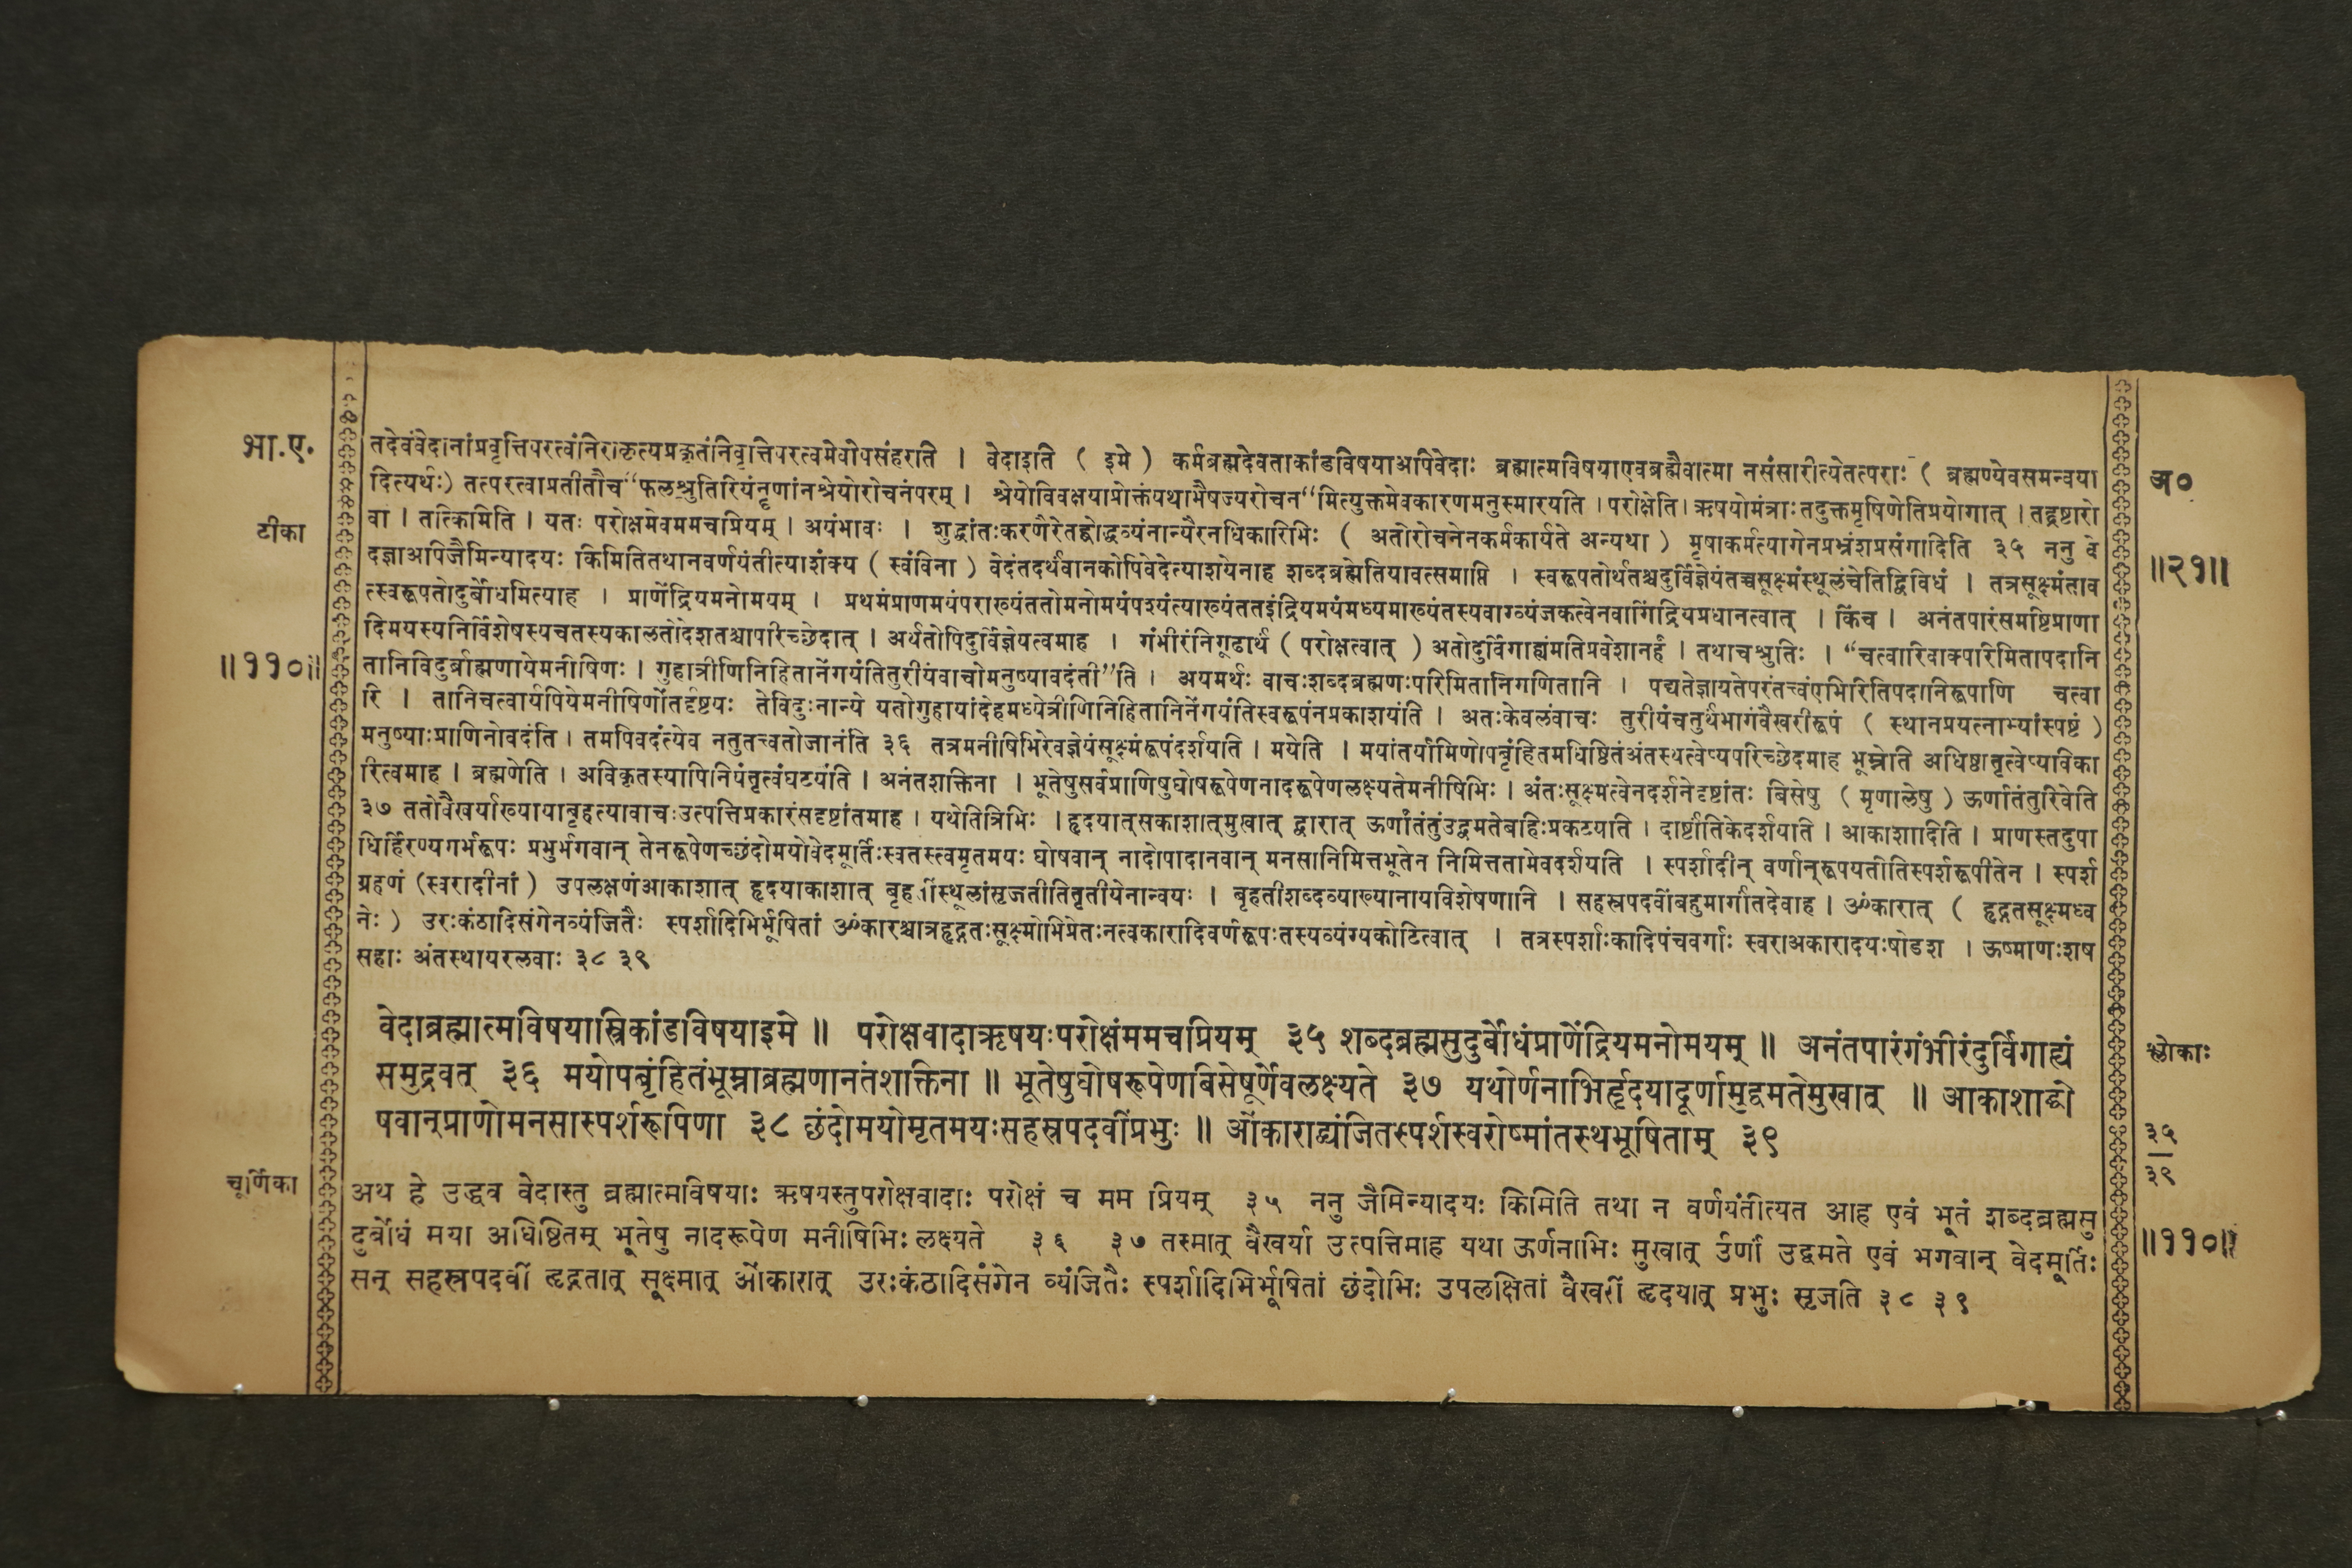 भा.ए.
टीका
॥११०॥
तदेवंवेदानांप्रवृत्तिपरत्वंनिराकृत्यप्रकृतंनिवृत्तिपरत्वमेवोपसंहरति । वेदाइति ( इमे ) कर्मब्रह्मदेवताकांडविषयाअपिवेदाः ब्रह्मात्मविषयाएवब्रह्मैवात्मा नसंसारीत्येतत्पराः ( ब्रह्मण्येवसमन्वया
दित्यर्थः) तत्परत्वाप्रतीतौच“फलश्रुतिरियंनॄणांनश्रेयोरोचनंपरम् । श्रेयोविवक्षयाप्रोक्तंयथाभैषज्यरोचन“मित्युक्तमेवकारणमनुस्मारयति । परोक्षेति । ऋषयोमंत्राः तदुक्तमृषिणेतिप्रयोगात् । तद्द्रष्टारो
वा । तत्किमिति । यतः परोक्षमेवममचप्रियम् । अयंभावः । शुद्धांतःकरणैरेतद्बोद्धव्यंनान्यैरनधिकारिभिः ( अतोरोचनेनकर्मकार्यते अन्यथा ) मृषाकर्मत्यागेनप्रभ्रंशप्रसंगादिति ३५ ननु वे
दज्ञाअपिजैमिन्यादयः किमितितथानवर्णयंतीत्याशंक्य ( स्वंविना ) वेदंतदर्थंवानकोपिवेदेत्याशयेनाह शब्दब्रह्मेतियावत्समाप्ति । स्वरूपतोर्थतश्चदुर्विज्ञेयंतच्चसूक्ष्मंस्थूलंचेतिद्विविधं । तत्रसूक्ष्मंताव
त्स्वरूपतोदुर्बोधमित्याह । प्राणेंद्रियमनोमयम् । प्रथमंप्राणमयंपराख्यंततोमनोमयंपश्यंत्याख्यंततइंद्रियमयंमध्यमाख्यंतस्यवाग्व्यंजकत्वेनवागिंद्रियप्रधानत्वात् । किंच । अनंतपारंसमष्टिप्राणा
दिमयस्यनिर्विशेषस्यचतस्यकालतोदेशतश्चापरिच्छेदात् । अर्थतोपिदुर्विज्ञेयत्वमाह । गंभीरंनिगूढार्थं ( परोक्षत्वात् ) अतोदुर्विगाह्यंमतिप्रवेशानर्हं । तथाचश्रुतिः । “चत्वारिवाक्परिमितापदानि
तानिविदुर्ब्राह्मणायेमनीषिणः । गुहात्रीणिनिहितानेंगयंतितुरीयंवाचोमनुष्यावदंती”ति । अयमर्थः वाचःशब्दब्रह्मणःपरिमितानिगणितानि । पद्यतेज्ञायतेपरंतत्त्वंएभिरितिपदानिरूपाणि चत्वा
रि । तानिचत्वार्यपियेमनीषिणोंतर्दृष्टयः तेविदुःनान्ये यतोगुहायांदेहमध्येत्रीणिनिहितानिनेंगयंतिस्वरूपंनप्रकाशयंति । अतःकेवलंवाचः तुरीयंचतुर्थभागंवैखरीरूपं ( स्थानप्रयत्नाभ्यांस्पष्टं )
मनुष्याःप्राणिनोवदंति । तमपिवदंत्येव नतुतत्त्वतोजानंति ३६ तत्रमनीषिभिरेवज्ञेयंसूक्ष्मंरूपंदर्शयति । मयेति । मयांतर्यामिणोपबृंहितमधिष्ठितंअंतस्थत्वेप्यपरिच्छेदमाह भूम्नेति अधिष्ठातृत्वेप्यविका
रित्वमाह । ब्रह्मणेति । अविकृतस्यापिनियंतृत्वंघटयति । अनंतशक्तिना । भूतेषुसर्वप्राणिषुघोषरूपेणनादरूपेणलक्ष्यतेमनीषिभिः । अंतःसूक्ष्मत्वेनदर्शनेदृष्टांतः बिसेषु ( मृणालेषु ) ऊर्णातंतुरिवेति
३७ ततोवैखर्याख्यायाबृहत्यावाचःउत्पत्तिप्रकारंसदृष्टांतमाह । यथेतित्रिभिः । हृदयात्सकाशात्मुखात् द्वारात् ऊर्णांतंतुंउद्वमतेबहिःप्रकटयति । दार्ष्टांतिकेदर्शयति । आकाशादिति । प्राणस्तदुपा
धिर्हिरण्यगर्भरूपः प्रभुर्भगवान् तेनरूपेणच्छंदोमयोवेदमूर्तिःस्वतस्त्वमृतमयः घोषवान् नादोपादानवान् मनसानिमित्तभूतेन निमित्ततामेवदर्शयति । स्पर्शादीन् वर्णान्रूपयतीतिस्पर्शरूपीतेन । स्पर्श
ग्रहणं (स्वरादीनां ) उपलक्षणंआकाशात् हृदयाकाशात् स्थूलांसृजतीतितृतीयेनान्वयः । बृहतीशब्दव्याख्यानायविशेषणानि । सहस्रपदवींबहुमार्गांतदेवाह । ॐकारात् ( हृद्गतसूक्ष्मध्व
नेः ) उरःकंठादिसंगेनव्यंजितैः स्पर्शादिभिर्भूषितां ॐकारश्चात्रहृद्गतःसूक्ष्मोभिप्रेतःनत्वकारादिवर्णरूपःतस्यव्यंग्यकोटित्वात् । तत्रस्पर्शाःकादिपंचवर्गाः स्वराअकारादयःषोडश । ऊष्माणःशष
सहाः अंतस्थायरलवाः ३८ ३९
वेदाब्रह्मात्मविषयास्त्रिकांडविषयाइमे ॥ परोक्षवादाऋषयःपरोक्षंममचप्रियम् ३५ शब्दब्रह्मसुदुर्बोधंप्राणेंद्रियमनोमयम् ॥ अनंतपारंगंभीरंदुर्विगाह्यं
समुद्रवत् ३६ मयोपबृंहितंभूम्नाब्रह्मणानतंशक्तिना ॥ भूतेषुघोषरूपेणबिसेषूर्णेवलक्ष्यते ३७ यथोर्णनाभिर्हृदयादूर्णामुद्वमतेमुखात् ॥ आकाशाद्घो
षवान्प्राणोमनसास्पर्शरूपिणा ३८ छंदोमयोमृतमयःसहस्रपदवींप्रभुः ॥ ओंकाराद्व्यंजितस्पर्शस्वरोष्मांतस्थभूषिताम् ३९
चूर्णिका
अथ हे उद्धव वेदास्तु ब्रह्मात्मविषयाः ऋषयस्तुपरोक्षवादाः परोक्षं च मम प्रियम् ३५ ननु जैमिन्यादयः किमिति तथा न वर्णयंतीत्यत आह एवं भूतं शब्दब्रह्मसु
दुर्बोधं मया अधिष्ठितम् भूतेषु नादरूपेण मनीषिभिः लक्ष्यते ३६ ३७ तस्मात् वैखर्या उत्पत्तिमाह यथा ऊर्णनाभिः मुखात् उर्णां उद्वमते एवं भगवान् वेदमूर्तिः
सन् सहस्रपदवीं हृद्गतात् सूक्ष्मात् ओंकारात् उरःकंठादिसंगेन व्यंजितैः स्पर्शादिभिर्भूषितां छंदोभिः उपलक्षितां वैखरीं हृदयात् प्रभुः सृजति ३८ ३९
अ०
॥२१॥
श्लोकाः
३५
३९
॥११०॥